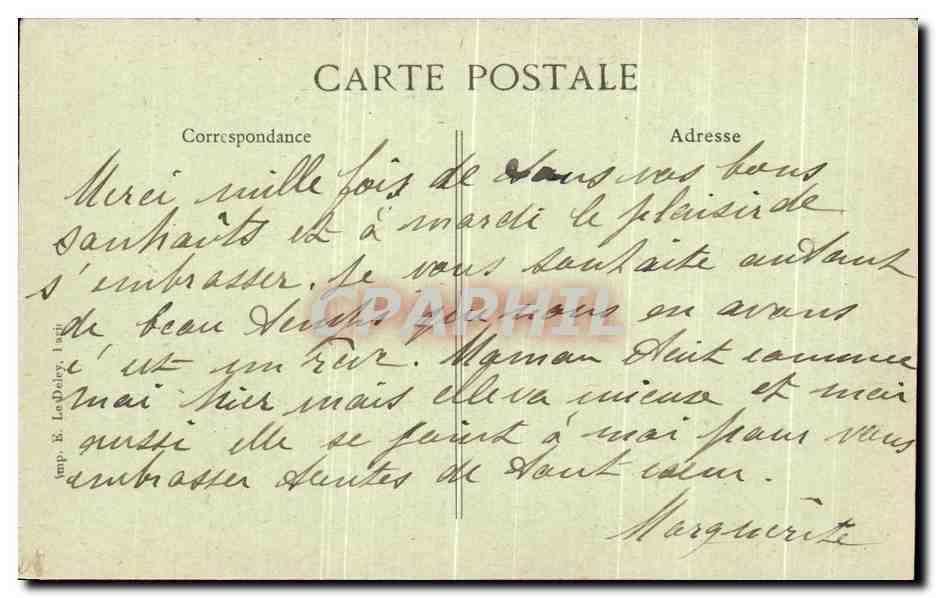 CARTE POSTALE
Correspondance
Adresse
Merci mille fois de tous vos bons
souhaits et à mardi le plaisir de
s'embrasser. Je vous souhaite autant
de beau temps que nous en avons
c'est un rêve. Maman était comme
moi hier mais elle va mieux et moi
aussi elle se joint à moi pour vous
embrasser toutes de tout cœur.
Marguerite
Imp. E. Le Deley,
CPAPHIL